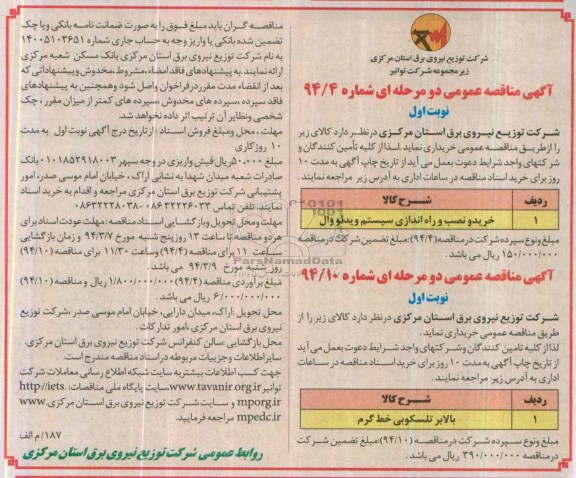 شرکت توزیع نیروی برق استان مرکزی
زیر مجموعه شرکت توانیر
آگهی مناقصه عمومی دو مرحله ای شماره ۹۴/۴
نوبت اول
شرکت توزیع نیروی برق استان مرکزی در نظر دارد کالای زیر
را از طریق مناقصه عمومی خریداری نماید. لذا از کلیه تأمین کنندگان و
شرکتهای واجد شرایط دعوت بعمل می آید از تاریخ چاپ آگهی به مدت ۱۰
روز برای خرید اسناد مناقصه در ساعات اداری به آدرس زیر مراجعه نمایند.
ردیف شرح کالا
۱ خرید و نصب و راه اندازی سیستم ویدئو وال
مبلغ و نوع سپرده شرکت در مناقصه (۹۴/۴): مبلغ تضمین شرکت در مناقصه
۱۵۰/۰۰۰/۰۰۰ ریال می باشد.
آگهی مناقصه عمومی دو مرحله ای شماره ۹۴/۱۰
نوبت اول
شرکت توزیع نیروی برق استان مرکزی در نظر دارد کالای زیر را از
طریق مناقصه عمومی خریداری نماید.
لذا از کلیه تامین کنندگان و شرکتهای واجد شرایط دعوت بعمل می آید
از تاریخ چاپ آگهی به مدت ۱۰ روز برای خرید اسناد مناقصه در ساعات
اداری به آدرس زیر مراجعه نمایند.
ردیف شرح کالا
۱ بالابر تلسکوپی خط گرم
مبلغ و نوع سپرده شرکت در مناقصه (۹۴/۱۰): مبلغ تضمین شرکت
در مناقصه ۳۹۰/۰۰۰/۰۰۰ ریال می باشد.
مناقصه گران باید مبلغ فوق را به صورت ضمانت نامه بانکی و یا چک
تضمین شده بانکی یا واریز وجه به حساب جاری شماره ۱۴۰۰۵۱۰۳۶۵۱
به نام شرکت توزیع نیروی برق استان مرکزی بانک مسکن شعبه مرکزی
ارائه نمایند. به پیشنهادهای فاقد امضاء، مشروط، مخدوش و پیشنهاداتی که
بعد از انقضاء مدت مقرر در فراخوان واصل شود و همچنین به پیشنهادهای
فاقد سپرده، سپرده های مخدوش، سپرده های کمتر از میزان مقرر، چک
شخصی و نظایر آن ترتیب اثر داده نخواهد شد.
مهلت، محل و مبلغ فروش اسناد: از تاریخ درج آگهی نوبت اول به مدت
۱۰ روز کاری
۵۰،۰۰۰ ریال فیش واریزی در وجه سپهر ۰۱۰۱۸۵۲۹۱۸۰۰۳ بانک
صادرات شعبه میدان شهدا به نشانی اراک ، خیابان امام موسی صدر، امور
پشتیبانی شرکت توزیع برق استان مرکزی مراجعه و اقدام به خرید اسناد
نمایند. تلفن تماس ۰۸۶۳۲۲۲۶۰۳۳ - ۰۸۶۳۲۲۲۸۰۳۸
مهلت و محل تحویل و بازگشایی اسناد مناقصه: مهلت عودت اسناد برای
هر دو مناقصه تا ساعت ۱۳ روز پنج شنبه مورخ ۹۴/۳/۷ و زمان بازگشایی
ساعت ۱۱ برای مناقصه (۹۴/۴) و ساعت ۱۱/۳۰ برای مناقصه (۹۴/۱۰)
روز شنبه مورخ ۹۴/۳/۹ می باشد.
مبلغ برآوردی مناقصه (۹۴/۴) ۱/۸۰۰/۰۰۰/۰۰۰ ریال و مناقصه (۹۴/۱۰)
۶/۰۰۰/۰۰۰/۰۰۰ ریال می باشد.
محل تحویل :اراک، میدان دارایی، خیابان امام موسی صدر، شرکت توزیع
نیروی برق استان مرکزی ، امور تدارکات .
محل بازگشایی: سالن کنفرانس شرکت توزیع نیروی برق استان مرکزی.
سایر اطلاعات و جزییات مربوطه در اسناد مناقصه مندرج است.
جهت کسب اطلاعات بیشتر به سایت شبکه اطلاع رسانی معاملات شرکت
توانیر www.tavanir.org.ir سایت پایگاه ملی مناقصات: http://iets.
mporg.ir و سایت شرکت توزیع نیروی برق استان مرکزی www.
mpedc.ir مراجعه فرمایید.
۱۸۷/م الف
روابط عمومی شرکت توزیع نیروی برق استان مرکزی
ParsNamadData